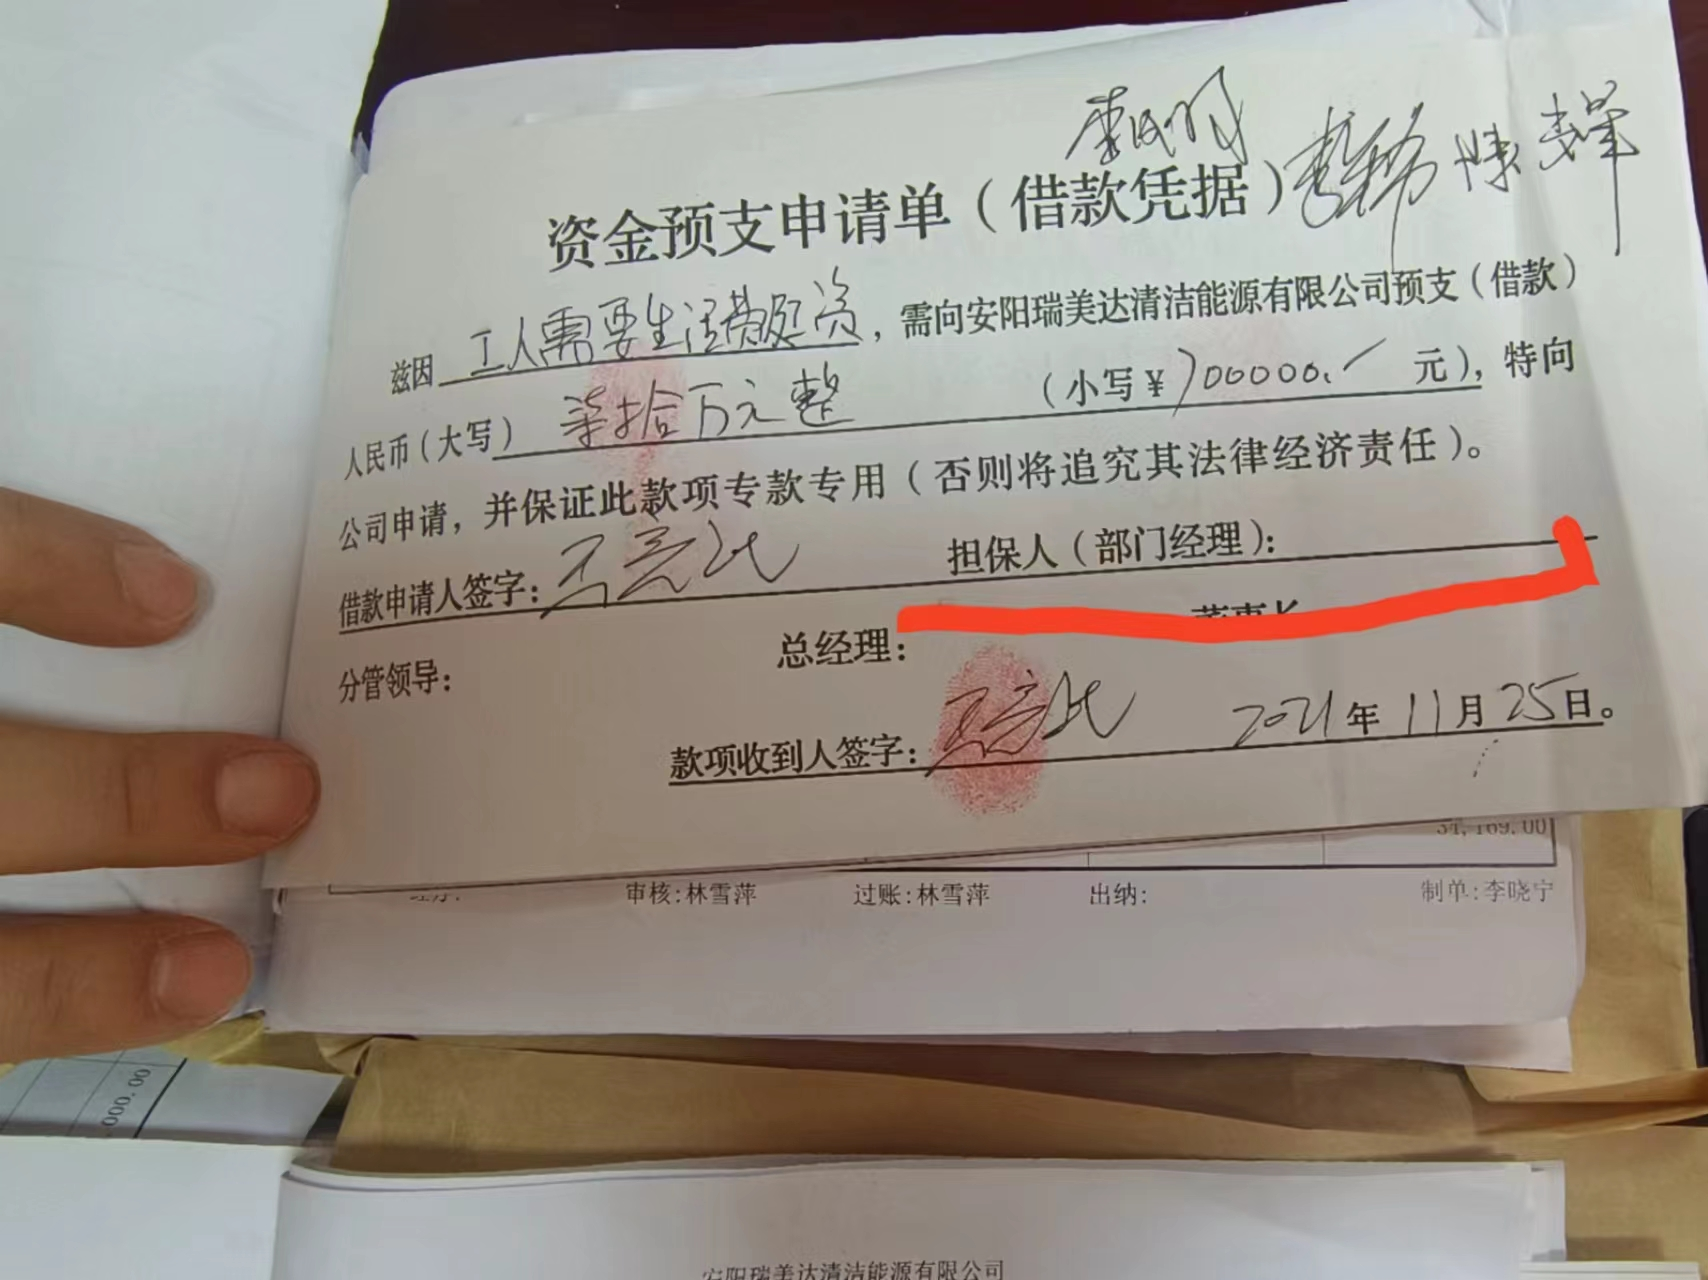 李民明
陈
资金预支申请单（借款凭据）
兹因 工人需要生活费及工资，需向安阳瑞美达清洁能源有限公司预支（借款）
人民币（大写） 柒拾万元整 （小写￥700000.／ 元），特向
公司申请，并保证此款项专款专用（否则将追究其法律经济责任）。
借款申请人签字： 担保人（部门经理）：
分管领导： 总经理： 董事长
款项收到人签字： 2021年11月25日。
34,169.00
审核:林雪萍 过账:林雪萍 出纳: 制单:李晓宁
000.00
安阳瑞美达清洁能源有限公司